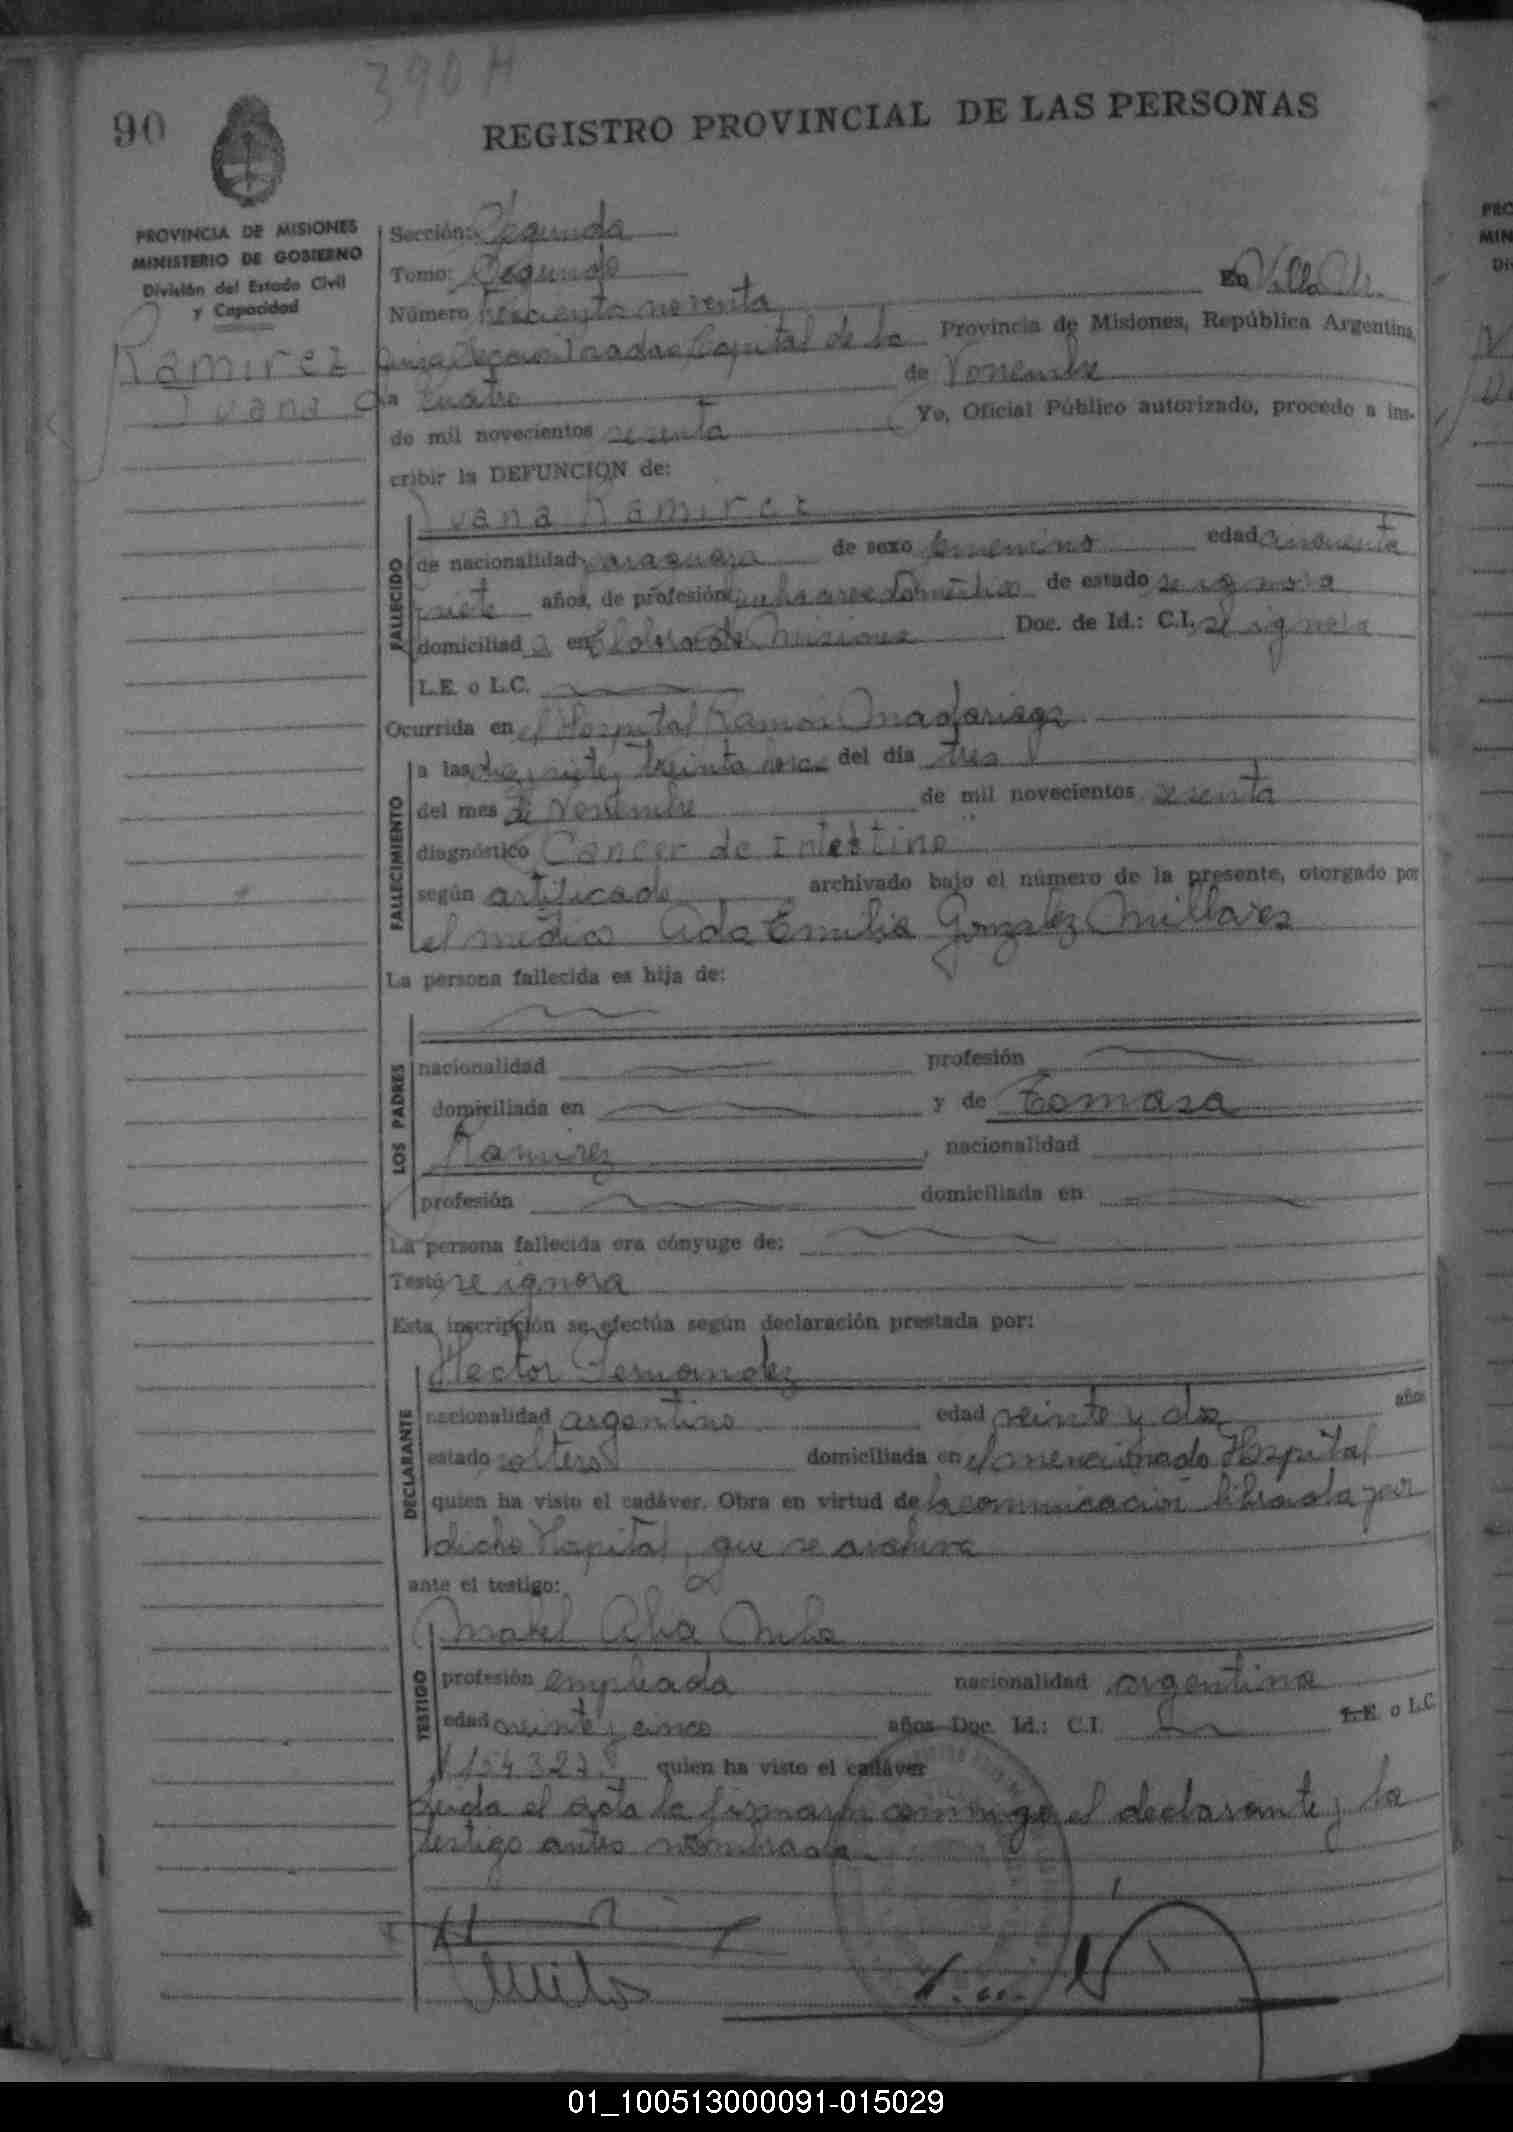 390 H
90
REGISTRO PROVINCIAL DE LAS PERSONAS
PROVINCIA DE MISIONES
MINISTERIO DE GOBIERNO
División del Estado Civil
y Capacidad
Ramirez
Juana
Sección: Segunda
Tomo: Segundo
En Villa
Número trescientos noventa
Posadas, Capital de la Provincia de Misiones, República Argentina,
a cuatro de Noviembre
de mil novecientos sesenta Yo, Oficial Público autorizado, procedo a ins-
cribir la DEFUNCION de:
Juana Ramirez
FALLECIDO
de nacionalidad paraguaya de sexo femenino edad cincuenta
y siete años, de profesión quehaceres domésticos de estado se ignora
domiciliad a en Misiones Doc. de Id.: C.I. se ignora
L.E. o L.C.
Ocurrida en el Hospital Ramon Madariaga
FALLECIMIENTO
a las diez y siete, treinta horas del día tres
del mes de Noviembre de mil novecientos sesenta
diagnóstico "Cancer de Intestino"
según certificado archivado bajo el número de la presente, otorgado por
el médico Ada Emilia Gonzalez Millares
La persona fallecida es hija de:
LOS PADRES
nacionalidad profesión
domiciliada en y de Tomasa
Ramirez, nacionalidad
profesión domiciliada en
La persona fallecida era cónyuge de:
Testó se ignora
Esta inscripción se efectúa según declaración prestada por:
Hector Fernandez
DECLARANTE
nacionalidad argentino edad veinte y dos años
estado soltero domiciliada en el mencionado Hospital
quien ha visto el cadáver. Obra en virtud de la comunicación librada por
dicho Hospital, que se archiva
ante el testigo:
Mabel Alia Milo
TESTIGO
profesión empleada nacionalidad argentina
edad veinte y cinco años Doc. Id.: C.I. L.E. o L.C.
1154327 quien ha visto el cadáver
Leida el acta la firman conmigo el declarante y la
testigo antes nombrada.
Milo
01_100513000091-015029